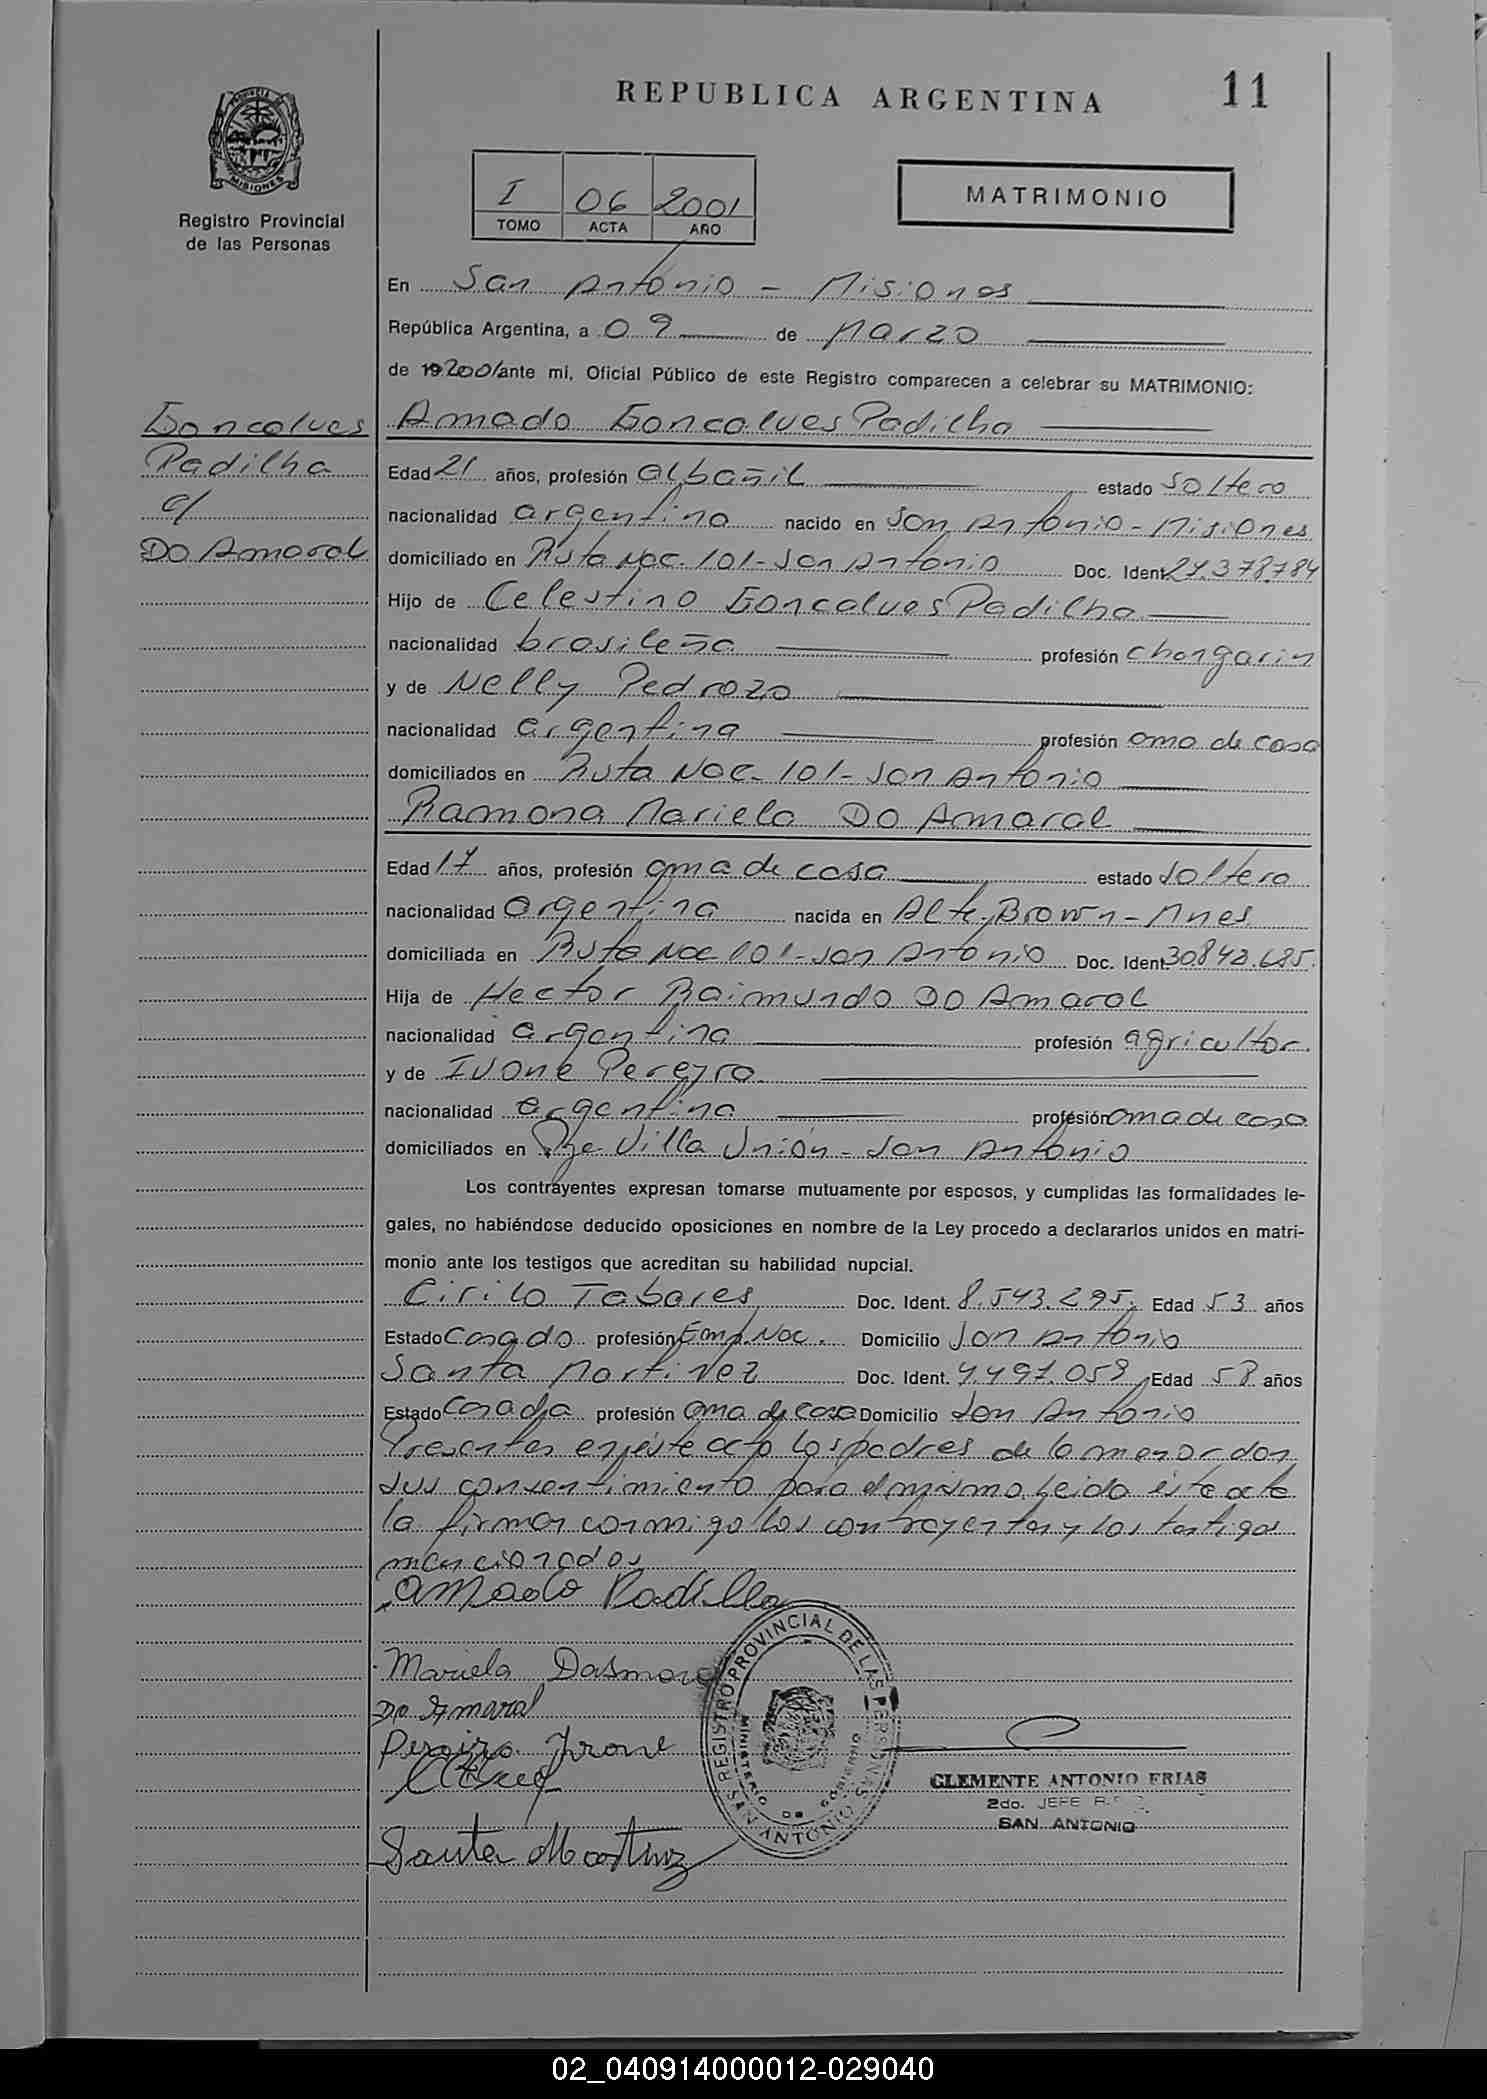 REPUBLICA ARGENTINA 11
PROVINCIA DE MISIONES
Registro Provincial
de las Personas
I 06 2001
TOMO ACTA AÑO
MATRIMONIO
En San Antonio - Misiones
República Argentina, a 09 de Marzo
de 192001 ante mi, Oficial Público de este Registro comparecen a celebrar su MATRIMONIO:
Goncalves
Padilha
c/
DO Amaral
Amado Goncalves Padilha
Edad 21 años, profesión albañil estado soltero
nacionalidad argentina nacido en San Antonio - Misiones
domiciliado en Ruta Nac. 101 - San Antonio Doc. Ident. 27.378.784
Hijo de Celestino Goncalves Padilha
nacionalidad brasileña profesión changarin
y de Nelly Pedrozo
nacionalidad argentina profesión ama de casa
domiciliados en Ruta Nac. 101 - San Antonio
Ramona Mariela DO Amaral
Edad 17 años, profesión ama de casa estado soltera
nacionalidad argentina nacida en Alte. Brown - Mnes
domiciliada en Ruta Nac 101 - San Antonio Doc. Ident. 30.842.685
Hija de Hector Raimundo DO Amaral
nacionalidad argentina profesión agricultor
y de Ivone Pereyra
nacionalidad argentina profesión ama de casa
domiciliados en Pje. Villa Unión - San Antonio
Los contrayentes expresan tomarse mutuamente por esposos, y cumplidas las formalidades le-
gales, no habiéndose deducido oposiciones en nombre de la Ley procedo a declararlos unidos en matri-
monio ante los testigos que acreditan su habilidad nupcial.
Cirilo Tabares Doc. Ident. 8.543.295. Edad 53 años
Estado Casado profesión Emp. Nac. Domicilio San Antonio
Santa Martinez Doc. Ident. 4.497.059 Edad 58 años
Estado Casada profesión ama de casa Domicilio San Antonio
Presentes en éste acto los padres de la menor dan
sus consentimiento para el mismo. Leida ésta acta
la firman conmigo los contrayentes y los testigos
mencionados
Amado Padilla
Mariela
Do Amaral
Pereira Ivone
Santa Martinez
REGISTRO PROVINCIAL DE LAS PERSONAS
MINISTERIO DE GOBIERNO
SAN ANTONIO
CLEMENTE ANTONIO FRIAS
2do. JEFE
SAN ANTONIO
02_040914000012-029040